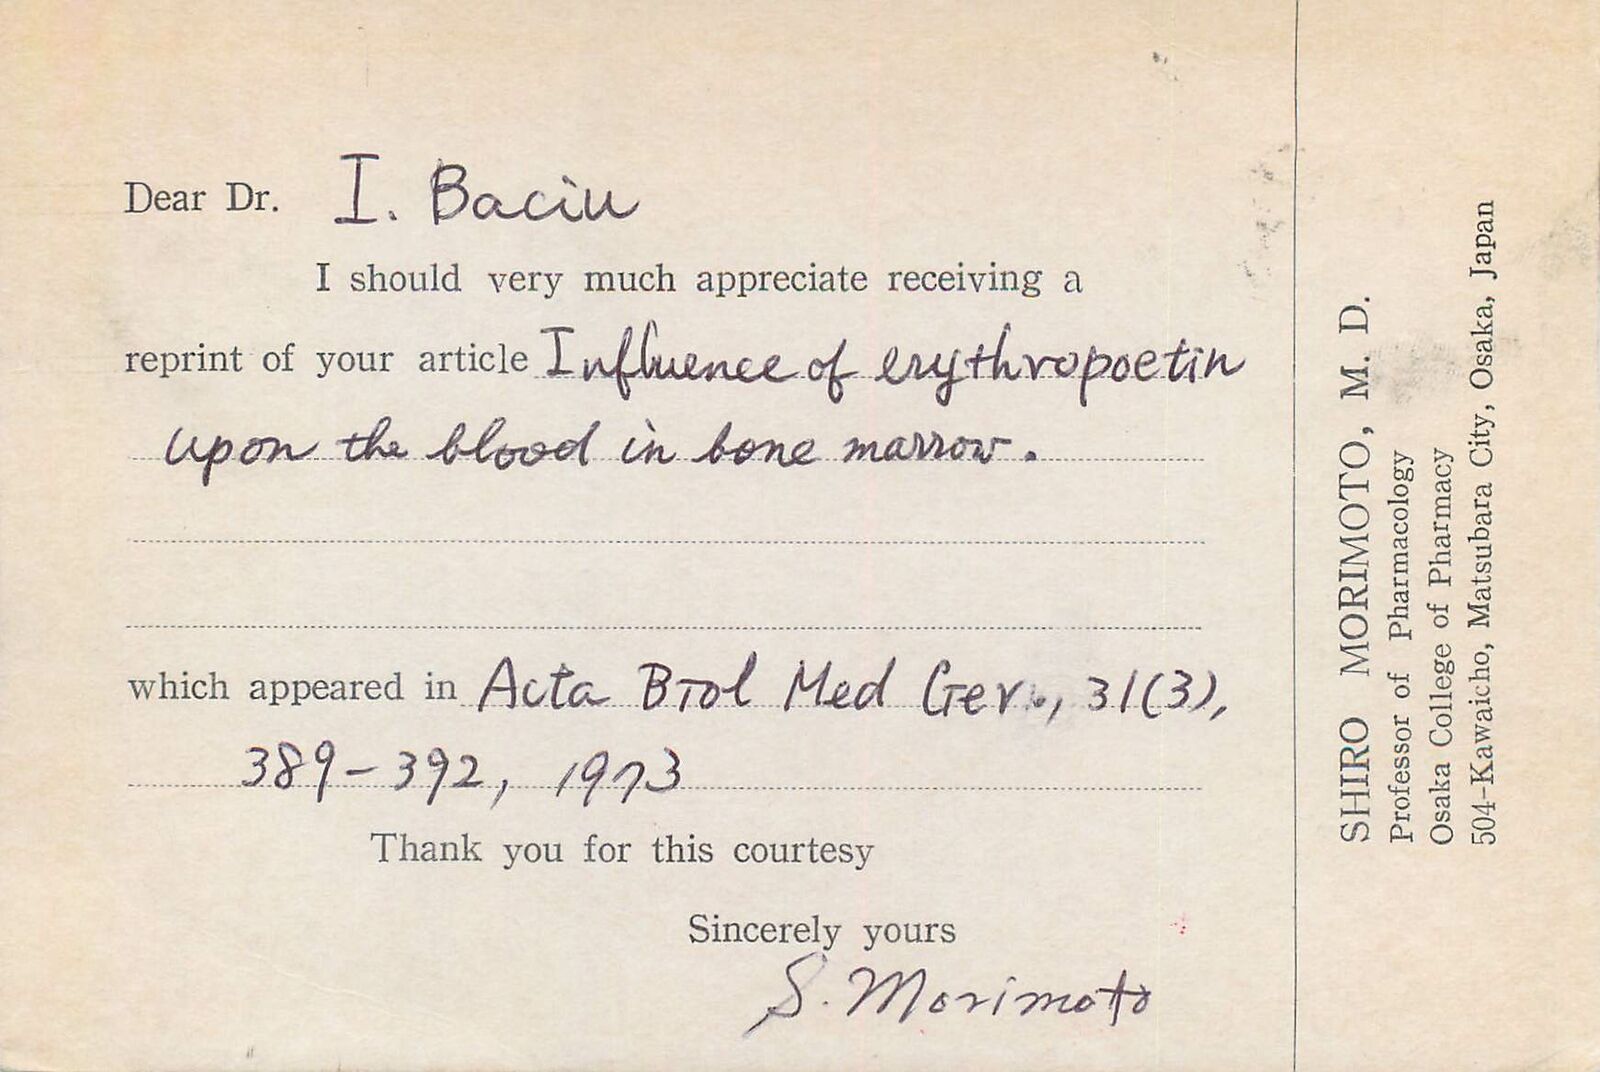 Dear Dr. I. Baciu
I should very much appreciate receiving a
reprint of your article Influence of erythropoetin
upon the blood in bone marrow.
which appeared in Acta Biol Med Ger., 31(3),
389-392, 1973
Thank you for this courtesy
Sincerely yours
S. Morimoto
SHIRO MORIMOTO, M. D.
Professor of Pharmacology
Osaka College of Pharmacy
504-Kawaicho, Matsubara City, Osaka, Japan